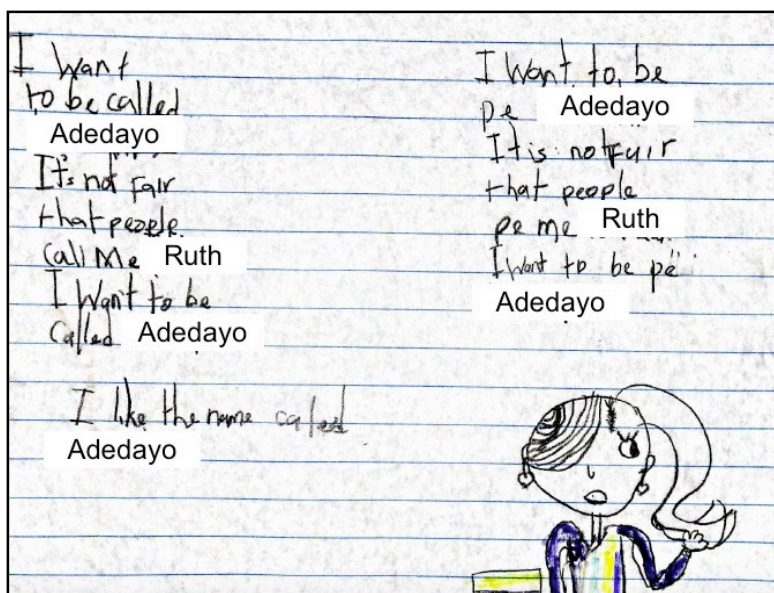 I want
to be called
Adedayo
It's not Fair
that people
call me Ruth
I want to be
called Adedayo
I like the name called
Adedayo
I want to be
pe Adedayo
It is not Fair
that people
pe me Ruth
I want to be pe
Adedayo